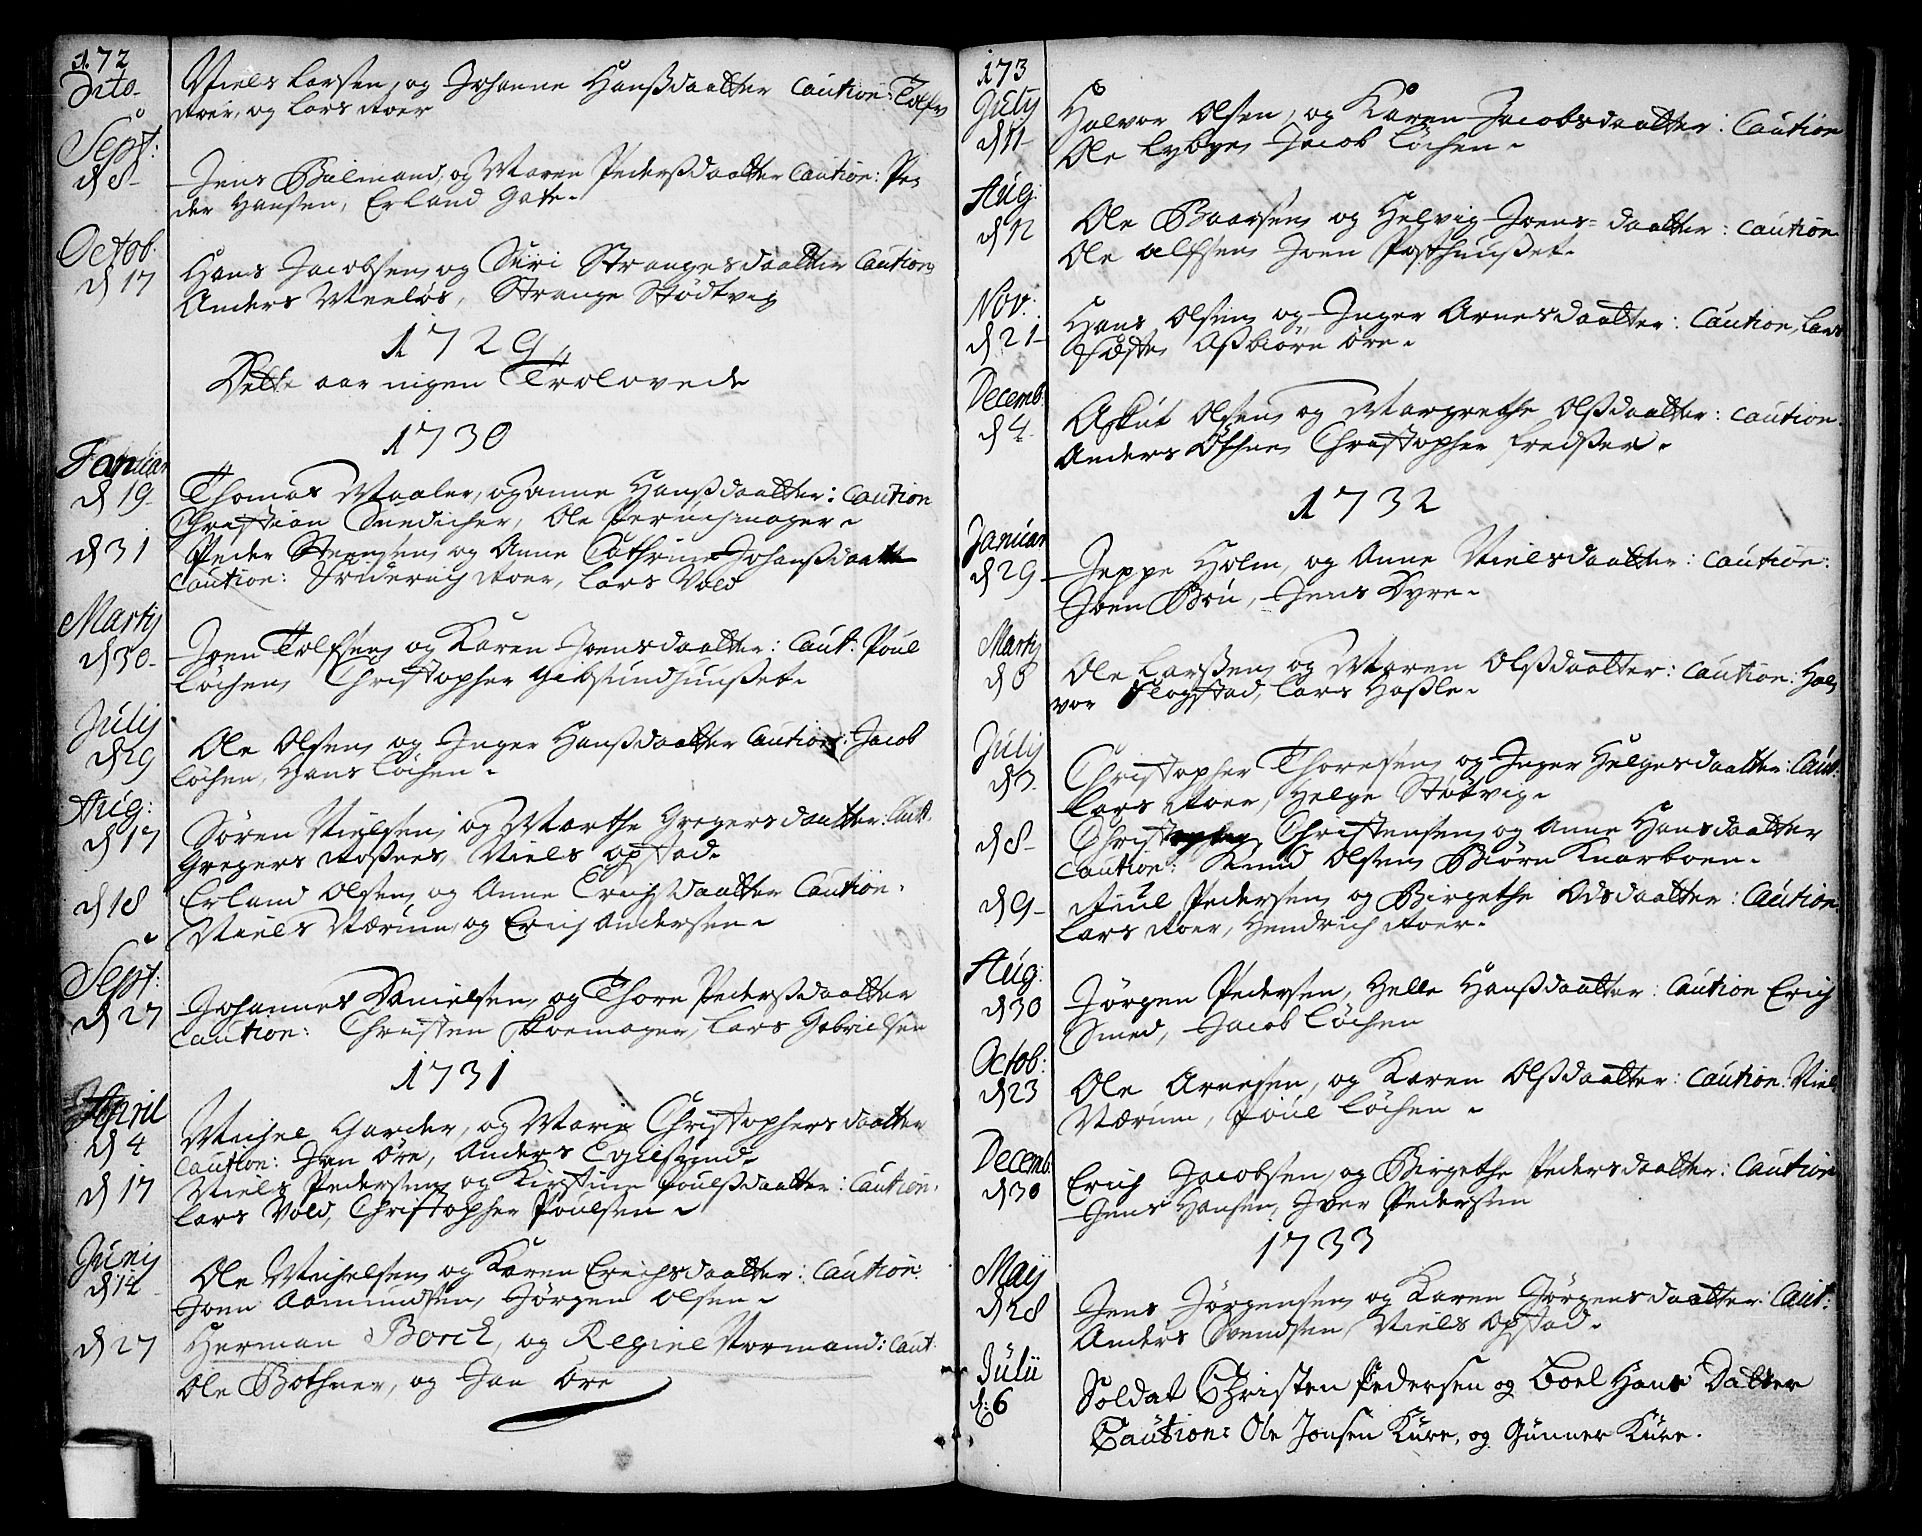 172
Dito
Niels Larsen, og Johanne Hanßdaatter Caution: Tolfv
Roer, og Lars Roer
Sept:
d 8
Jens Bulmand, og Maren Pederßdaatter Caution: Pe,
der Hansen, Erland Gate.
Octob:
d 17
Hans Jacobsen og Siri Strangesdaatter Caution
Anders Meeløs, Strange Stødtvig
1729
Dette aar ingen Trolovede
1730
Januar
d 19
Thomas Maaler, og Anne Hanßdaatter: Caution
Christian Snedicher, Ole
d 31
Peder Steensen og Anne Cathrine Johanßdaatter
Caution: Friderich Roer, Lars Vold
Martij
d 30
Joen Tolfsen og Karen Joensdaatter: Caut: Poul
Løchen Christopher Gibsundhuußet.
Julij
d 29
Ole Olsen og Inger Hanßdaatter Caution: Jacob
Løchen, Hans Løchen.
Aug:
d 17
Søren Nielsen og Marthe Gregersdaatter: Caut:
Gregers Roßnes, Niels Opstad.
d 18
Erland Olsen og Anne Erichsdaatter Caution.
Niels Værum, og Erich Andersen.
Sept:
d 27
Johannes Danielsen og Thore Pederßdaatter
Caution: Christen Skoemager, Lars Gabrielsen
1731
April
d 4
Michel Garder, og Marie Christophersdaatter
Caution: Jan Øre, Anders
d 17
Niels Pedersen og Kirstine Poulßdaatter: Caution.
Lars Vold, Christopher Poulsen.
Junij
d 14
Ole Michelsen og Karen Erichsdaatter: Caution:
Joen Aamundsen, Jørgen Olsen.
d 27
Herman Borch, og Regine Normand: Caut:
Ole Bothner, og Jan Øre
173
Julij
d 11
Halvor Olsen, og Karen Jacobsdaatter: Caution
Ole Lybye, Jacob Løchen.
Aug:
d 12
Ole Baarsen og Helvig Joens=daatter: Caution
Ole Alfsen, Joen Posthuußet.
Nov:
d 21
Hans Olsen og Inger Arnesdaatter: Caution, Lars
Aßbiørn Øre.
Decemb:
d 4
Askut Olsen og Margrethe Olßdaatter: Caution.
Anders Christopher
1732
Januar
d 29
Jeppe Holm, og Anne Nielsdaatter: Caution:
Joen Bøn, Jens Dyre.
Martij
d 8
Ole Larßen og Maren Olßdaatter: Caution: Hal,
vor Flogstad, Lars Haßle.
Julij
d 3
Christopher Thoresen og Inger Helgesdaatter: Caut:
Lars Roer, Helge Støtvig.
d 8
Christensen og Anne Hansdaatter
Caution: Knud Olsen, Biørn Knarboen.
d 9
Juul Pedersen og Birgethe Odsdaatter: Caution.
Lars Roer, Hendrich Roer.
Aug:
d 30
Jørgen Pedersen, Helle Hanßdaatter: Caution Erich
Smed, Jacob Løchen
Octob:
d 23
Ole Arnesen, og Karen Olßdaatter: Caution: Niels
Værum, Poul Løchen.
Decemb:
d 30
Erich Jacobsen, og Birgethe Pedersdaatter: Caution
Jens Hansen, Iver Pedersen
1733
Maij
d 28
Jens Jørgensen og Karen Jørgensdaatter: Caut:
Anders Svendsen, Niels Opstad.
Julii
d: 6
Soldat Christen Pedersen og Boel Hans Datter
Caution: Ole Jonsen Kure, og Gunner Kure.